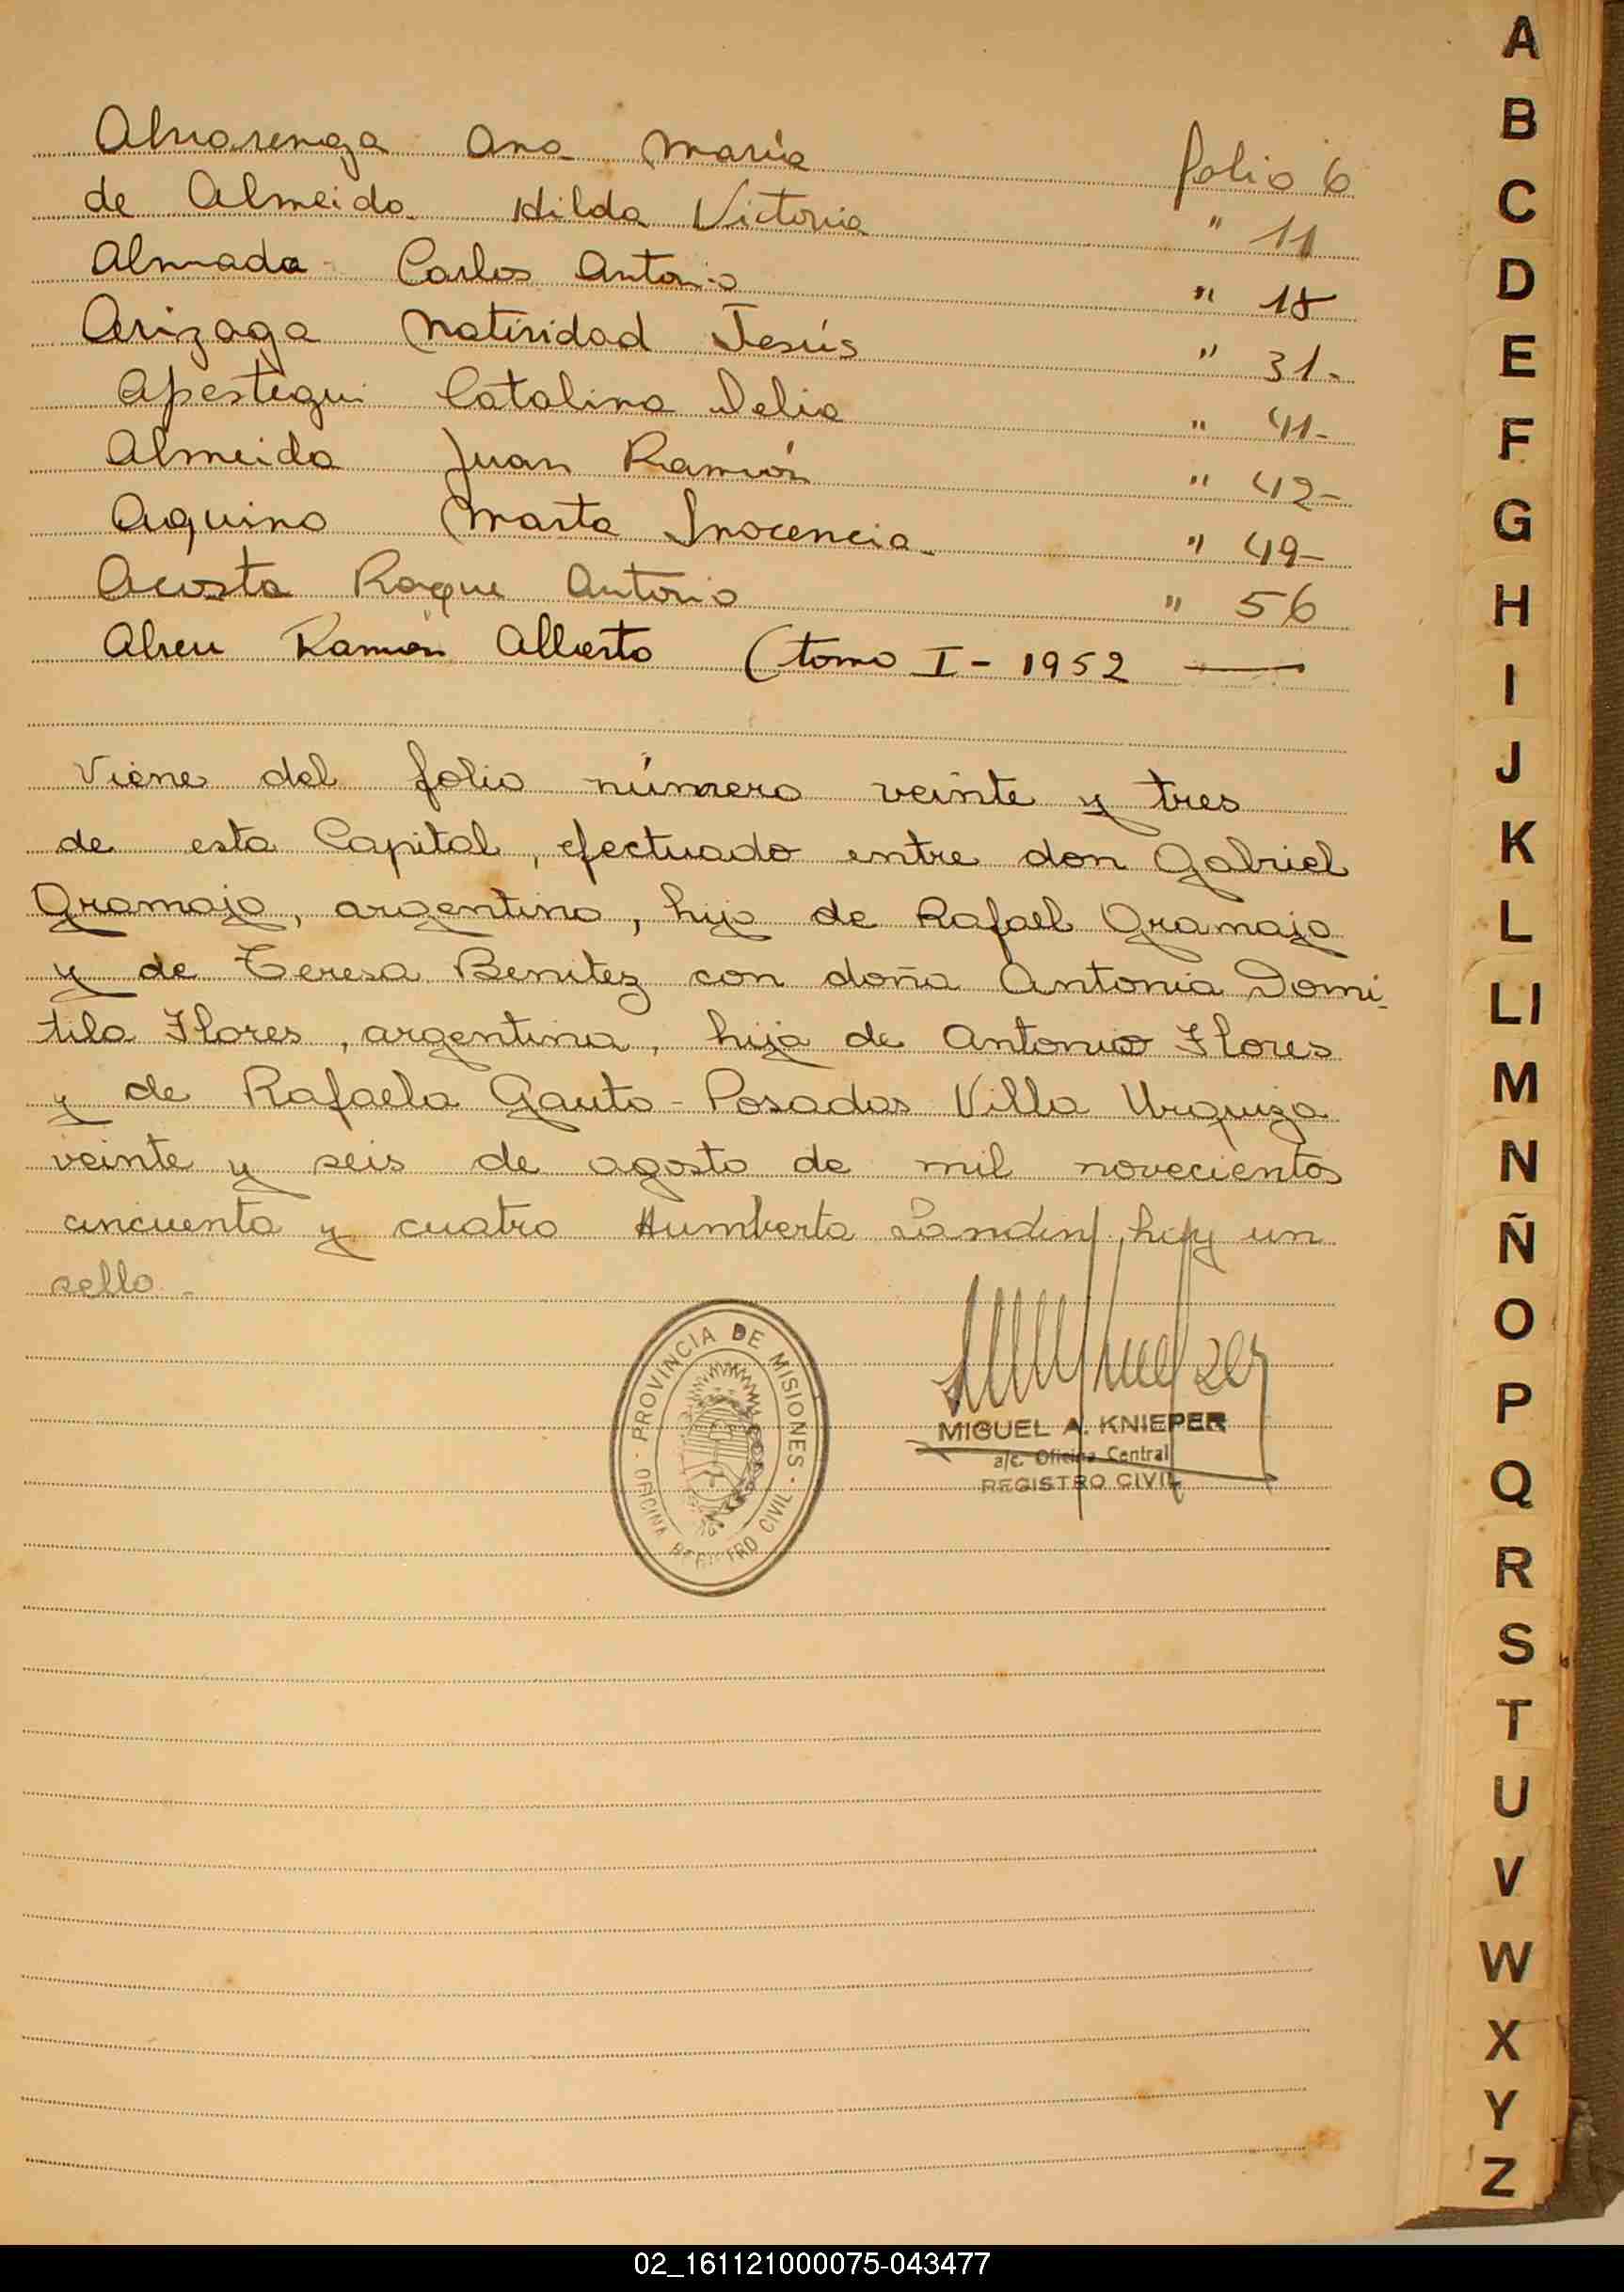 Alvarenga Ana María folio 6
de Almeida Hilda Victoria " 11
Almada Carlos Antonio " 18
Arizaga Natividad Jesús " 31-
Apestegui Catalina Delia " 41-
Almeida Juan Ramón " 42-
Aquino Marta Inocencia " 49-
Acosta Roque Antonio " 56
Abreu Ramón Alberto (tomo I - 1952 —
Viene del folio número veinte y tres
de esta Capital, efectuado entre don Gabriel
Gramajo, argentino, hijo de Rafael Gramajo
y de Teresa Benitez con doña Antonia Domi-
tila Flores, argentina, hija de Antonio Flores
y de Rafaela Gauto - Posadas Villa Urquiza
veinte y seis de agosto de mil novecientos
cincuenta y cuatro Humberto hay un
sello -
PROVINCIA DE MISIONES
OFICINA REGISTRO CIVIL
MIGUEL A. KNIEPER
a/c. Oficina Central
REGISTRO CIVIL
A
B
C
D
E
F
G
H
I
J
K
L
Ll
M
N
Ñ
O
P
Q
R
S
T
U
V
W
X
Y
Z
02_161121000075-043477